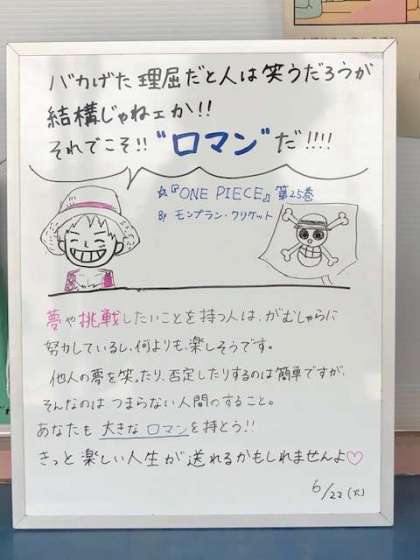 バカげた理屈だと人は笑うだろうが
結構じゃねェか!!
それでこそ!!"ロマン"だ!!!!
☆『ONE PIECE』第25巻
By モンブラン・クリケット
夢や挑戦したいことを持つ人は、がむしゃらに
努力しているし、何よりも、楽しそうです。
他人の夢を笑ったり、否定したりするのは簡単ですが、
そんなのは つまらない人間のすること。
あなたも 大きなロマンを持とう!!
きっと楽しい人生が送れるかもしれませんよ♡
6/22(火)